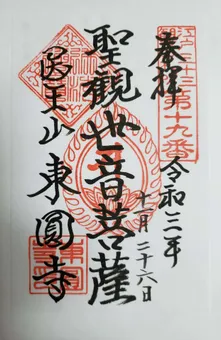 奉拝
第十九番
令和三年
十一月二十六日
聖観世音菩薩
医王山東圓寺